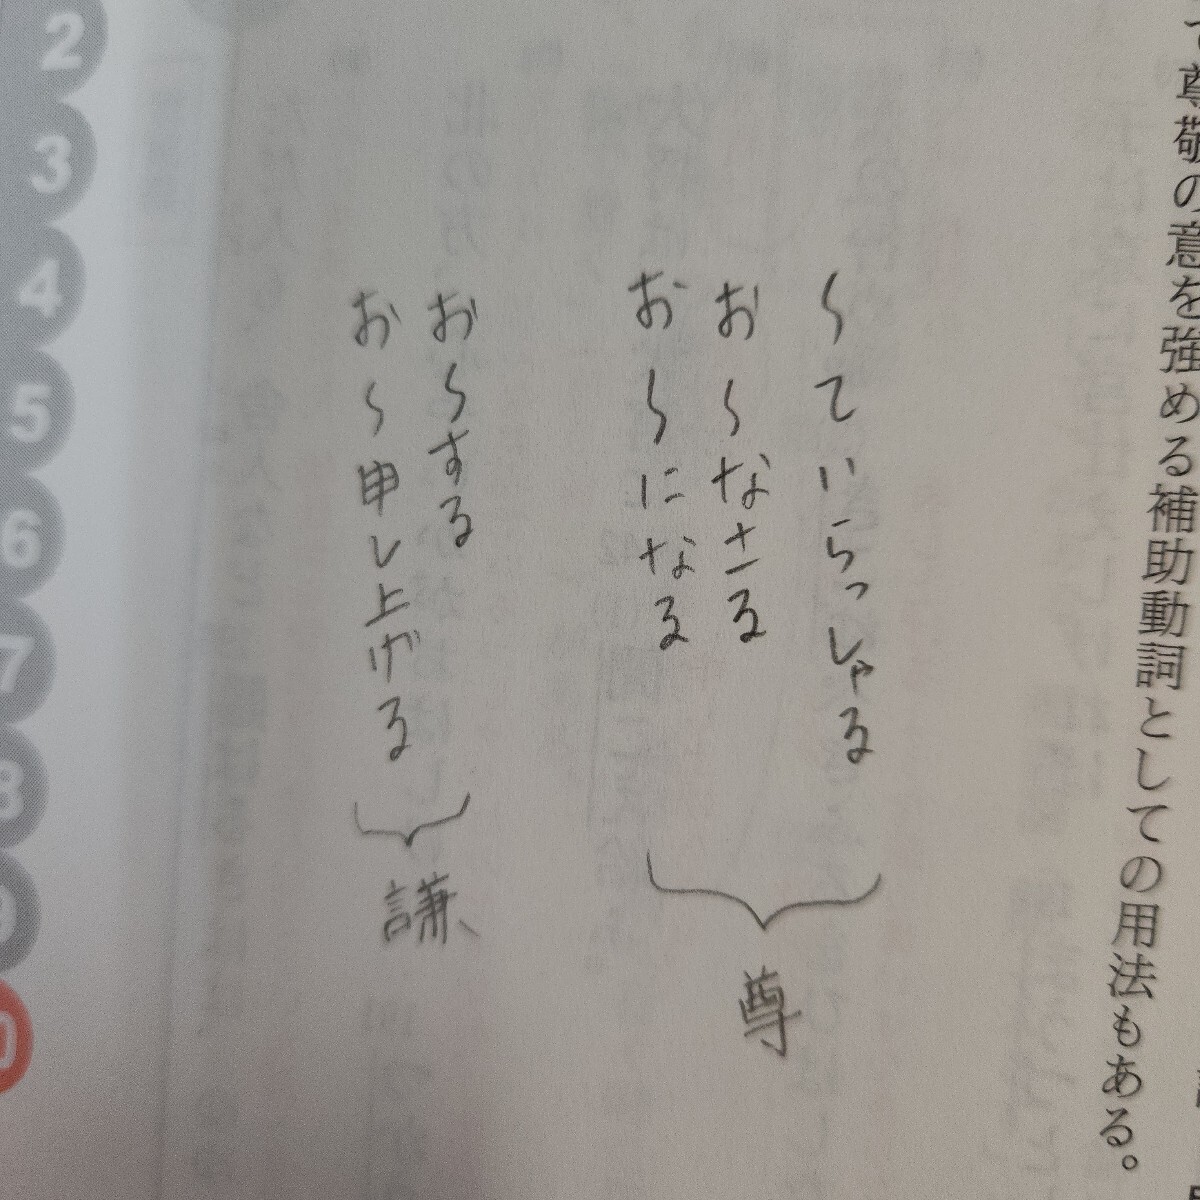 尊敬の意を強める補助動詞としての用法もある。
〜ていらっしゃる
お〜なさる
お〜になる
尊
お〜する
お〜申し上げる
謙
2
3
4
5
6
7
8
9